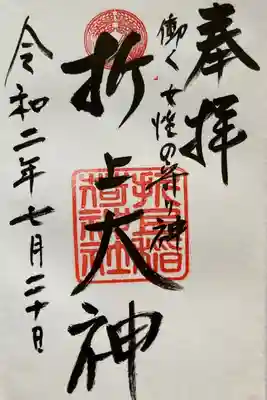 奉拝
働く女性の守り神
折上大神
折上稲荷神社
令和二年七月二十日